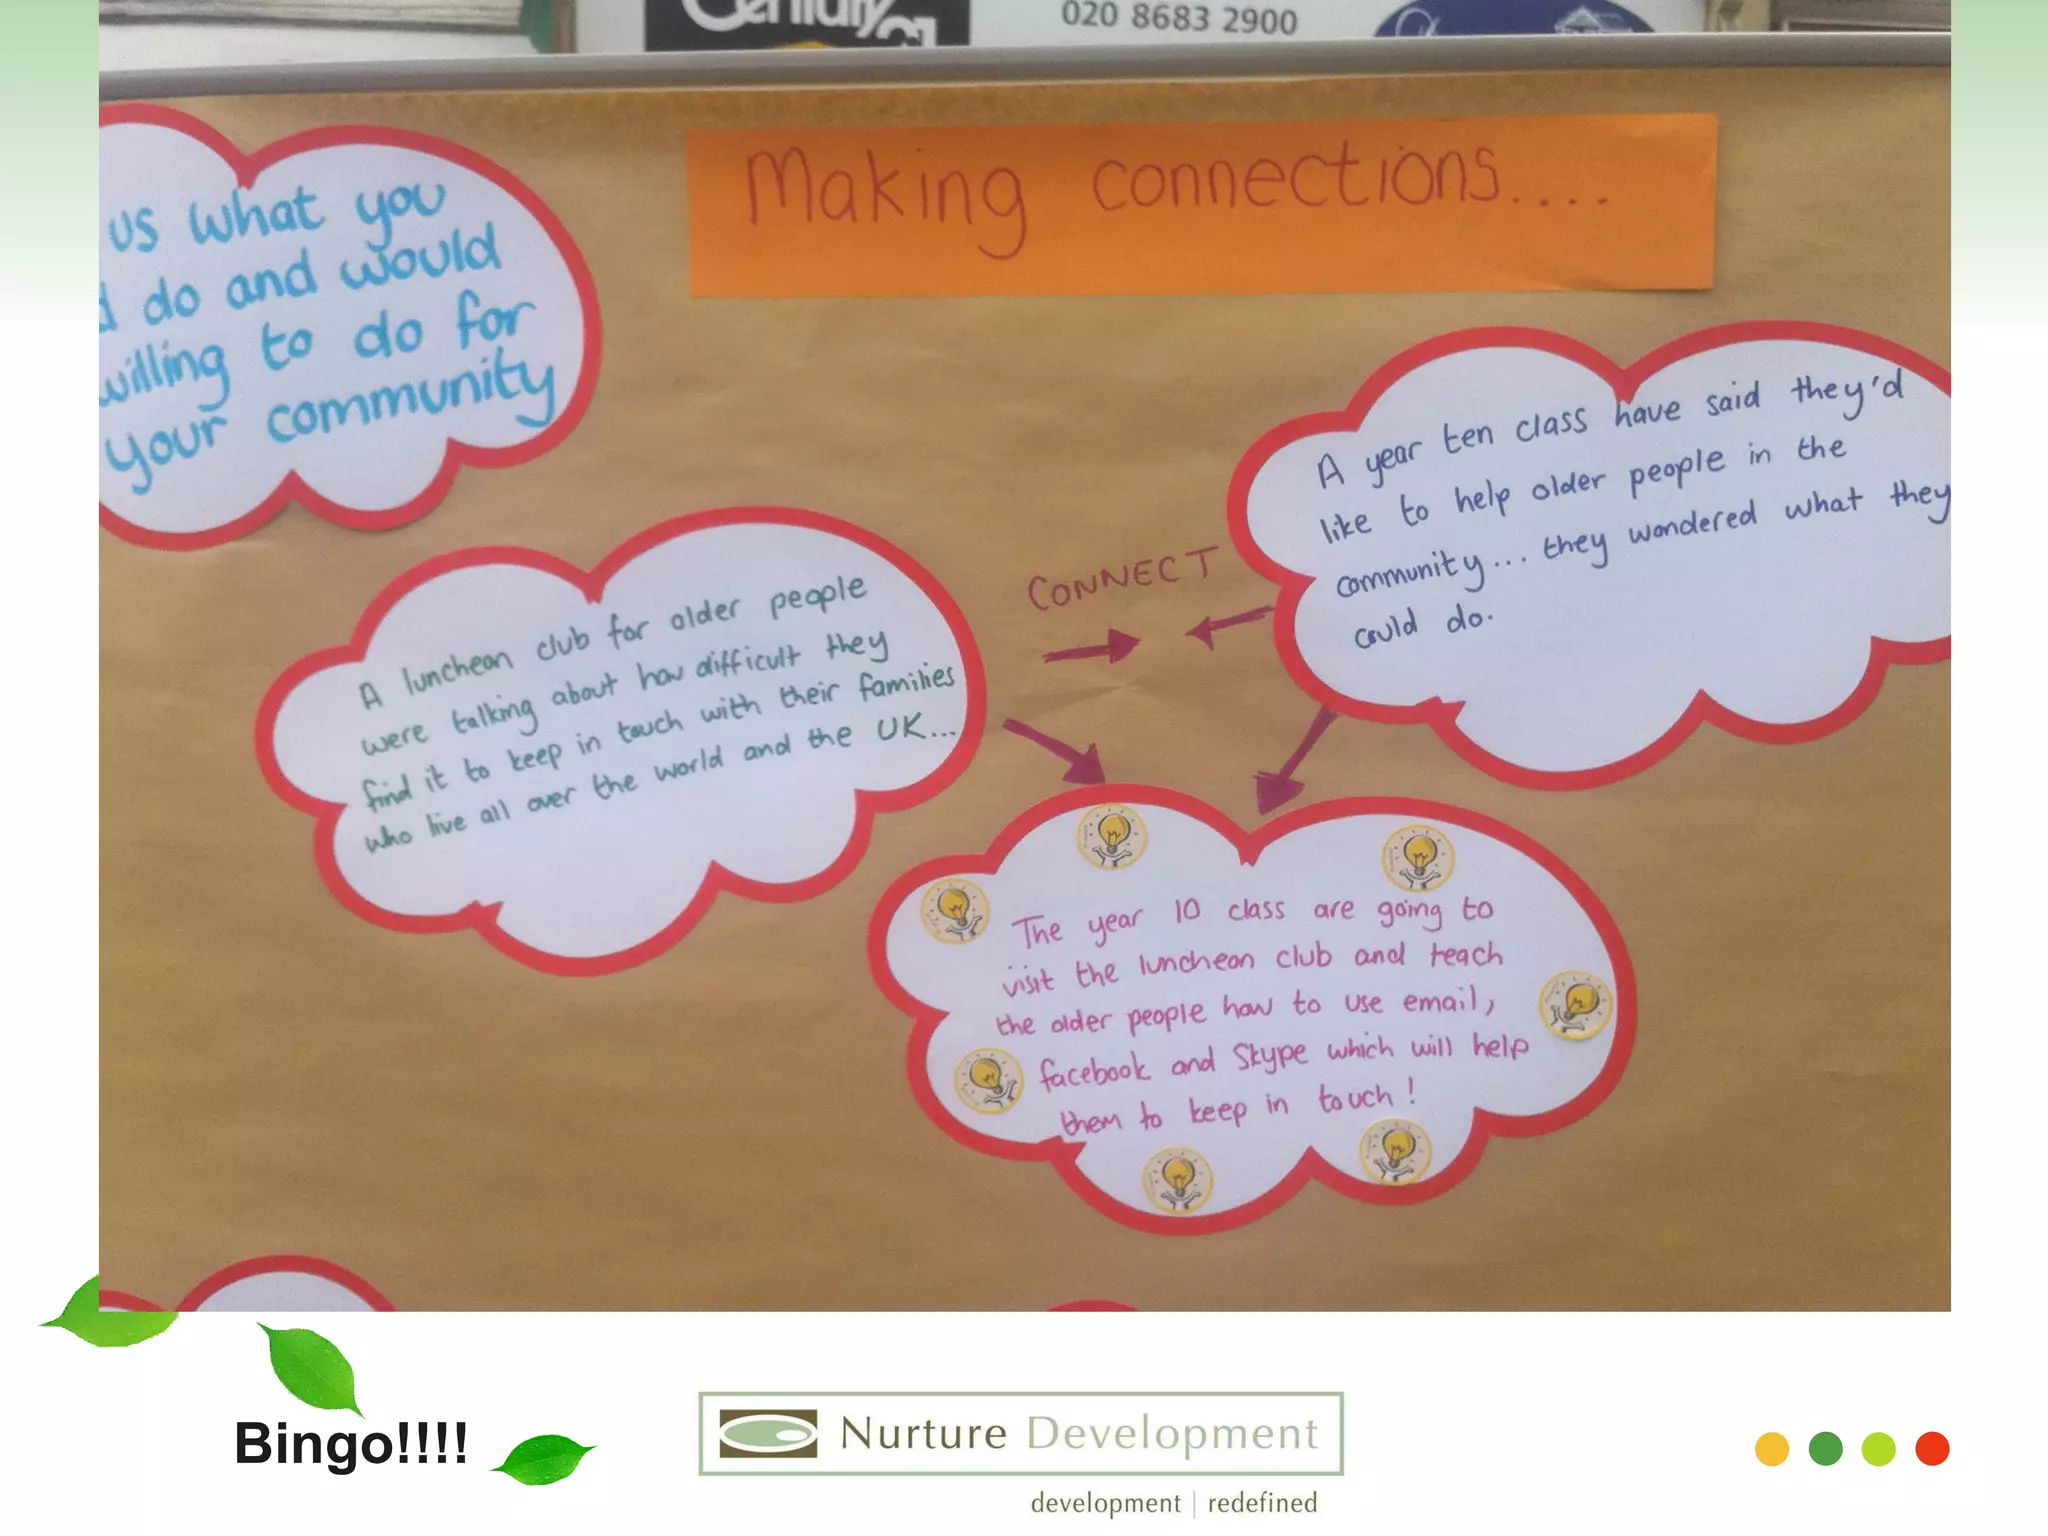 Century 21
020 8683 2900
Making connections....
us what you
do and would
willing to do for
your community
A year ten class have said they'd
like to help older people in the
community... they wondered what they
could do.
CONNECT
A luncheon club for older people
were talking about how difficult they
find it to keep in touch with their families
who live all over the world and the UK...
The year 10 class are going to
visit the luncheon club and teach
the older people how to use email,
facebook and Skype which will help
them to keep in touch!
Bingo!!!!
Nurture Development
development | redefined